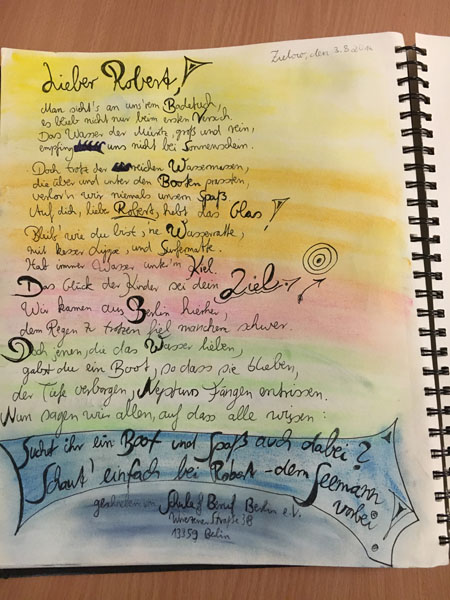 Zielow, den 3.8.
Lieber Robert,
Man sieht's an uns'rem Badetuch,
es blieb nicht nur beim ersten Versuch.
Das Wasser der Müritz, groß und rein,
empfing uns nicht bei Sonnenschein.
Doch trotz der reichen Wassermassen,
die über und unter den Booten prassten,
verlor'n wir niemals unsern Spaß
Auf dich, lieber Robert, hebt das Glas!
Bleib' wie du bist, 'ne Wasserratte,
mit kesser Lippe, und Surfermatte.
Halt immer Wasser unter'm Kiel.
Das Glück der Kinder sei dein Ziel.
Wir kamen aus Berlin hierher,
dem Regen zu trotzen fiel manchem schwer.
Doch jenen, die das Wasser lieben,
gabst du ein Boot, so dass sie blieben,
der Tiefe verborgen, Neptuns Fängen entrissen.
Nun sagen wir allen, auf dass alle wissen:
Sucht ihr ein Boot und Spaß auch dabei?
Schaut' einfach bei Robert - dem Seemann vorbei
geschrieben von Schule & Beruf Berlin e.V.
13359 Berlin